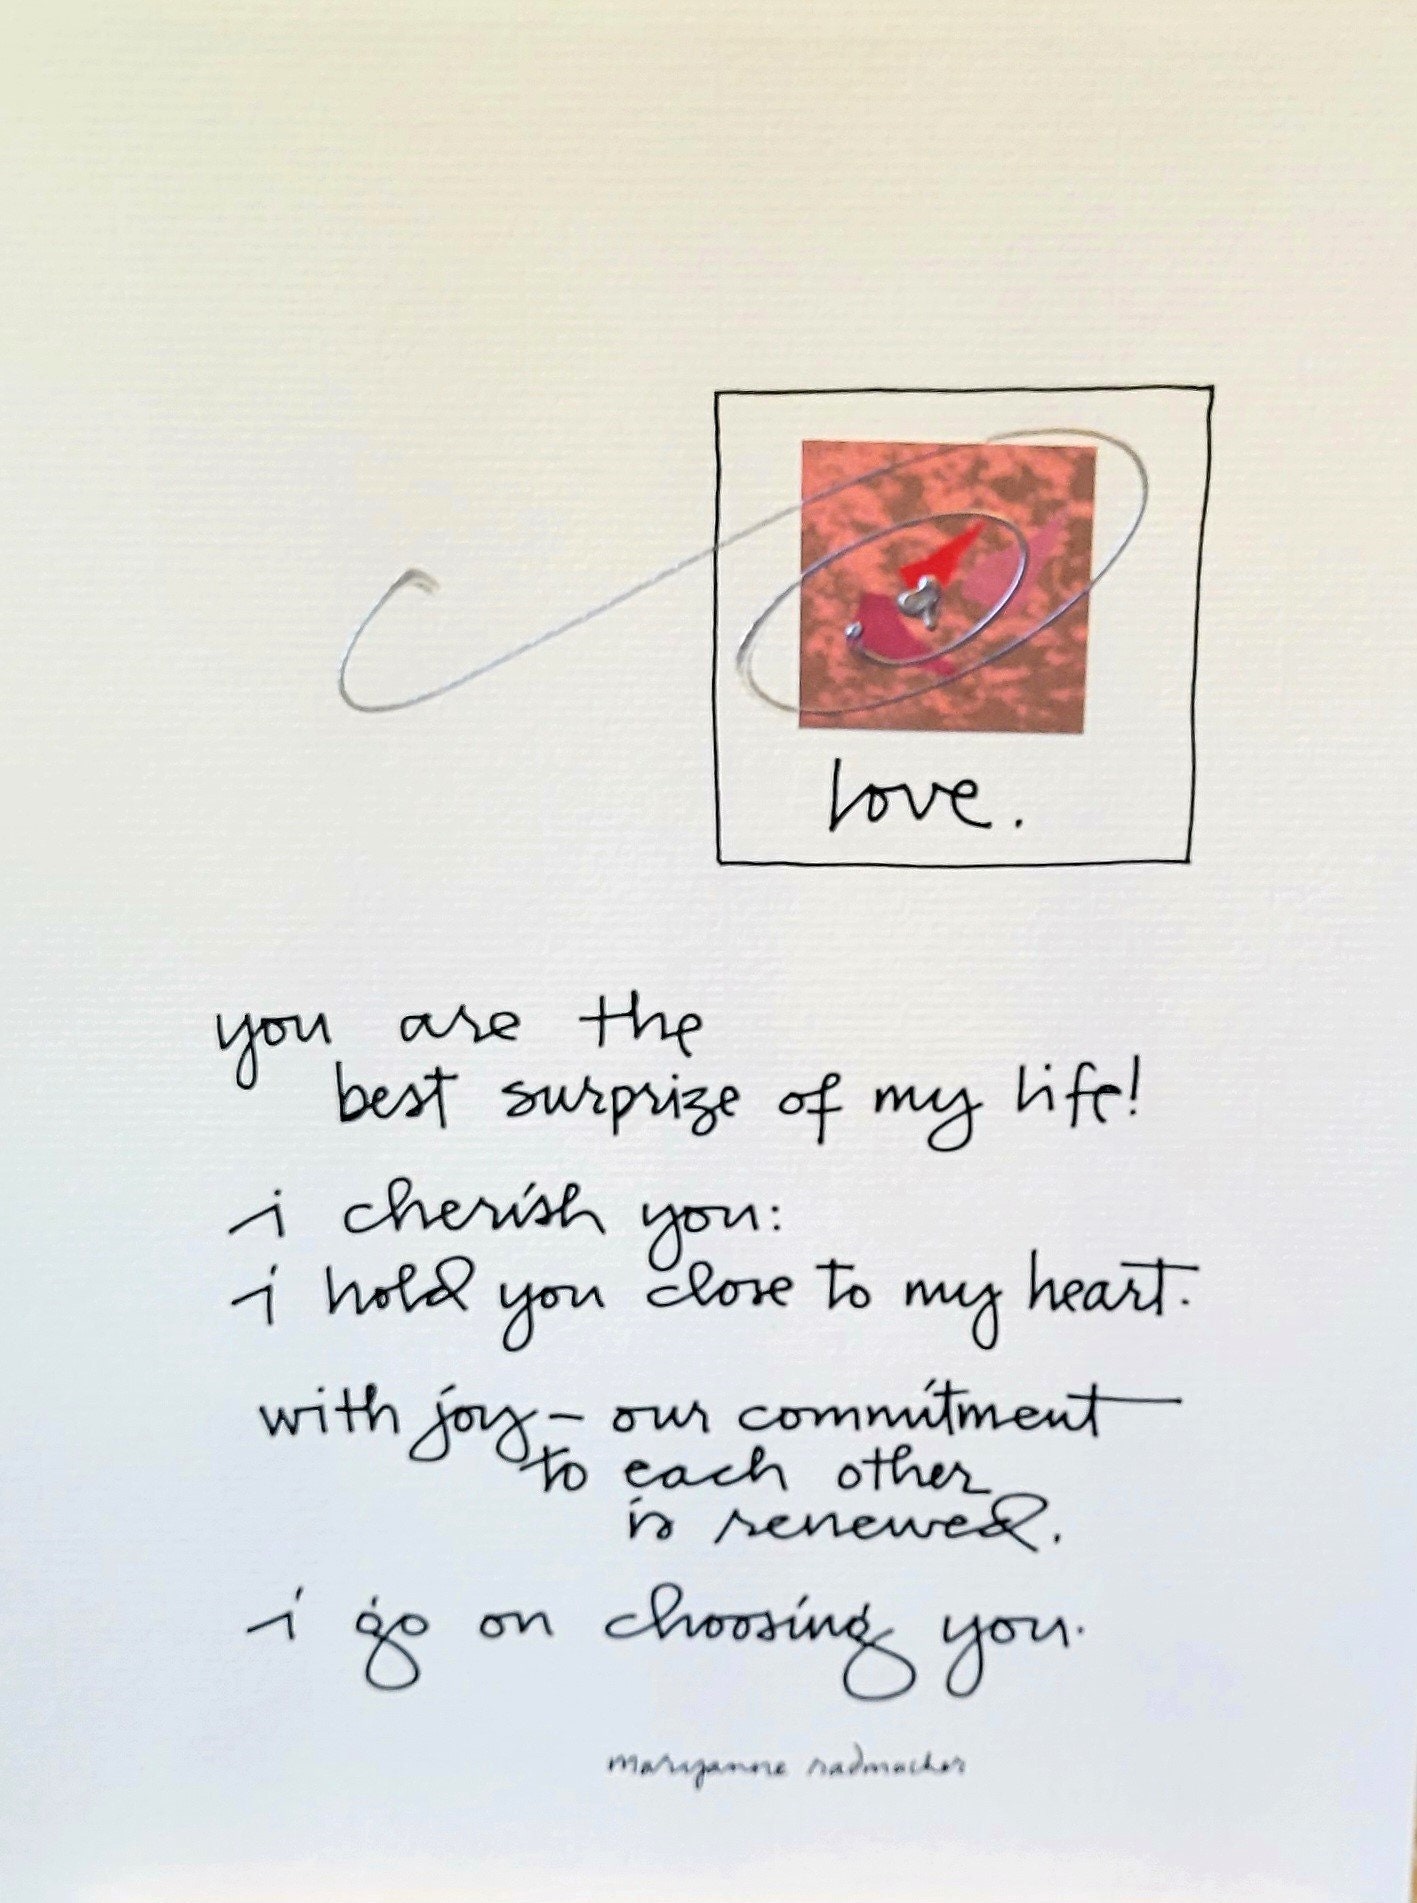 love.
you are the
best surprize of my life!
i cherish you:
i hold you close to my heart.
with joy – our commitment
to each other
is renewed.
i go on choosing you.
maryanne radmacher